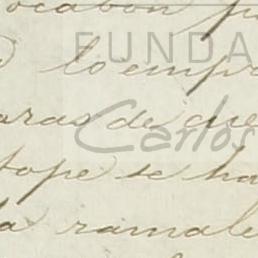 ocabon
FUNDA
lo empr
aras de cue
Carlos
tope se ha
la ramale